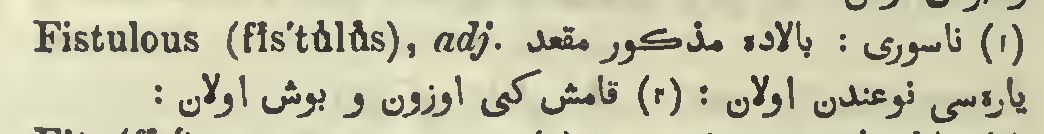 Fistulous (fĭs′tŭlŭs), adj. (۱) ناسوری : بالاده مذكور مقعد
ياره‌سی نوعندن اولان : (۲) قامش كبی اوزون و بوش اولان :